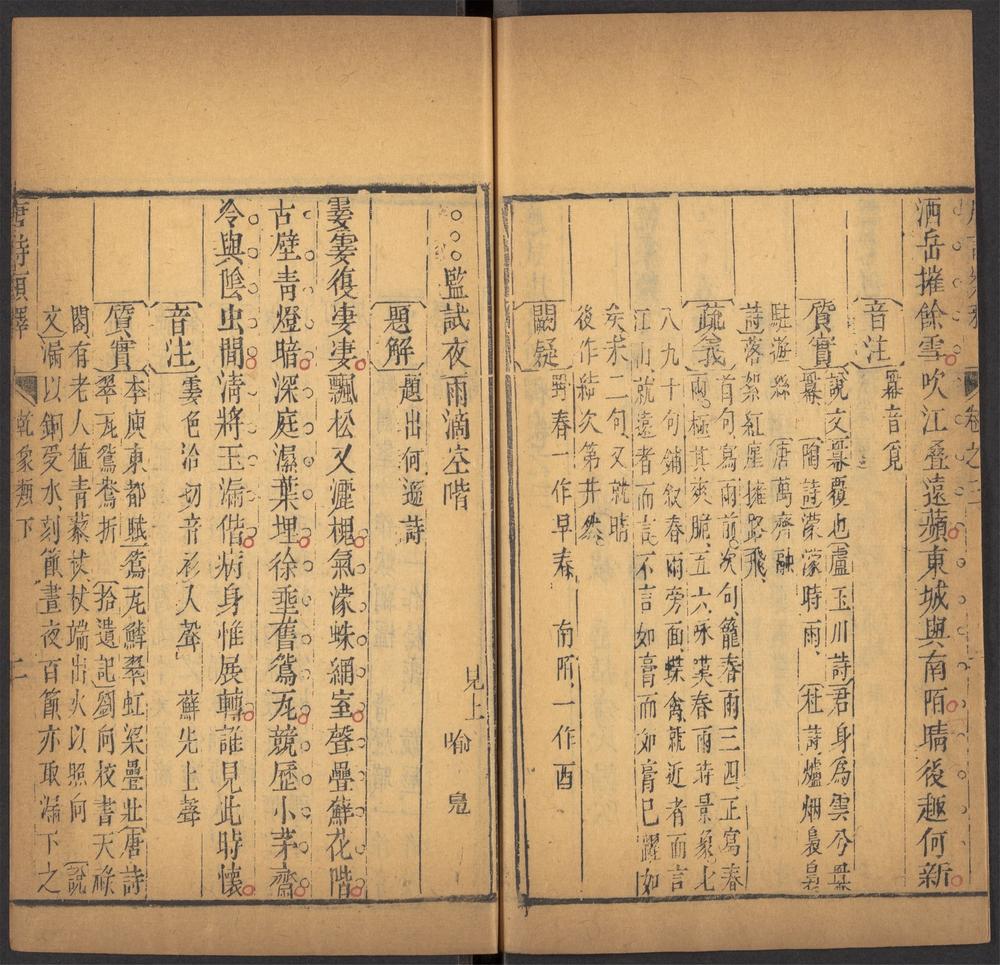 洒岳摧餘雪吹江疊遠蘋東城與南陌晴後趣何新
音注 羃音覓
質實 說文羃覆也盧玉川詩君身爲雲兮羃
羃 陶詩濛濛時雨 杜詩爐烟裊裊
駐海縣 唐萬齊融
詩落絮紅塵擁路飛
疏義 首句寫雨前次句籠春雨三四正寫春
雨極其爽脆五六承寫春雨時景象七
八九十句鋪叙春雨旁面蝶禽就近者而言
江山就遠者而言不言如膏而如膏已躍如
矣末二句又就晴
後作結次第井然
闕疑 郢春一作早春 南陌一作酉
監試夜雨滴空階 見上 喻鳧
題解 題出何遜詩
霎霎復淒淒飄松又灑槐氣濛蛛網室聲疊蘚花階
古壁青燈暗深庭濕葉埋徐垂舊鴛瓦競歷小茅齋
冷與陰虫間淸將玉漏偕病身惟展轉誰見此時懷
音注 霎色洽切音衫入聲 蘚先上聲
質實 李庾東都賦鴛瓦鱗翠虹梁疊壯唐詩
翠瓦鴛鴦折 拾遺記劉向校書天祿
閣有老人植青藜杖杖端出火以照向 說
文漏以銅受水刻節晝夜百節亦取漏下之
唐詩類釋 乾象類下 二